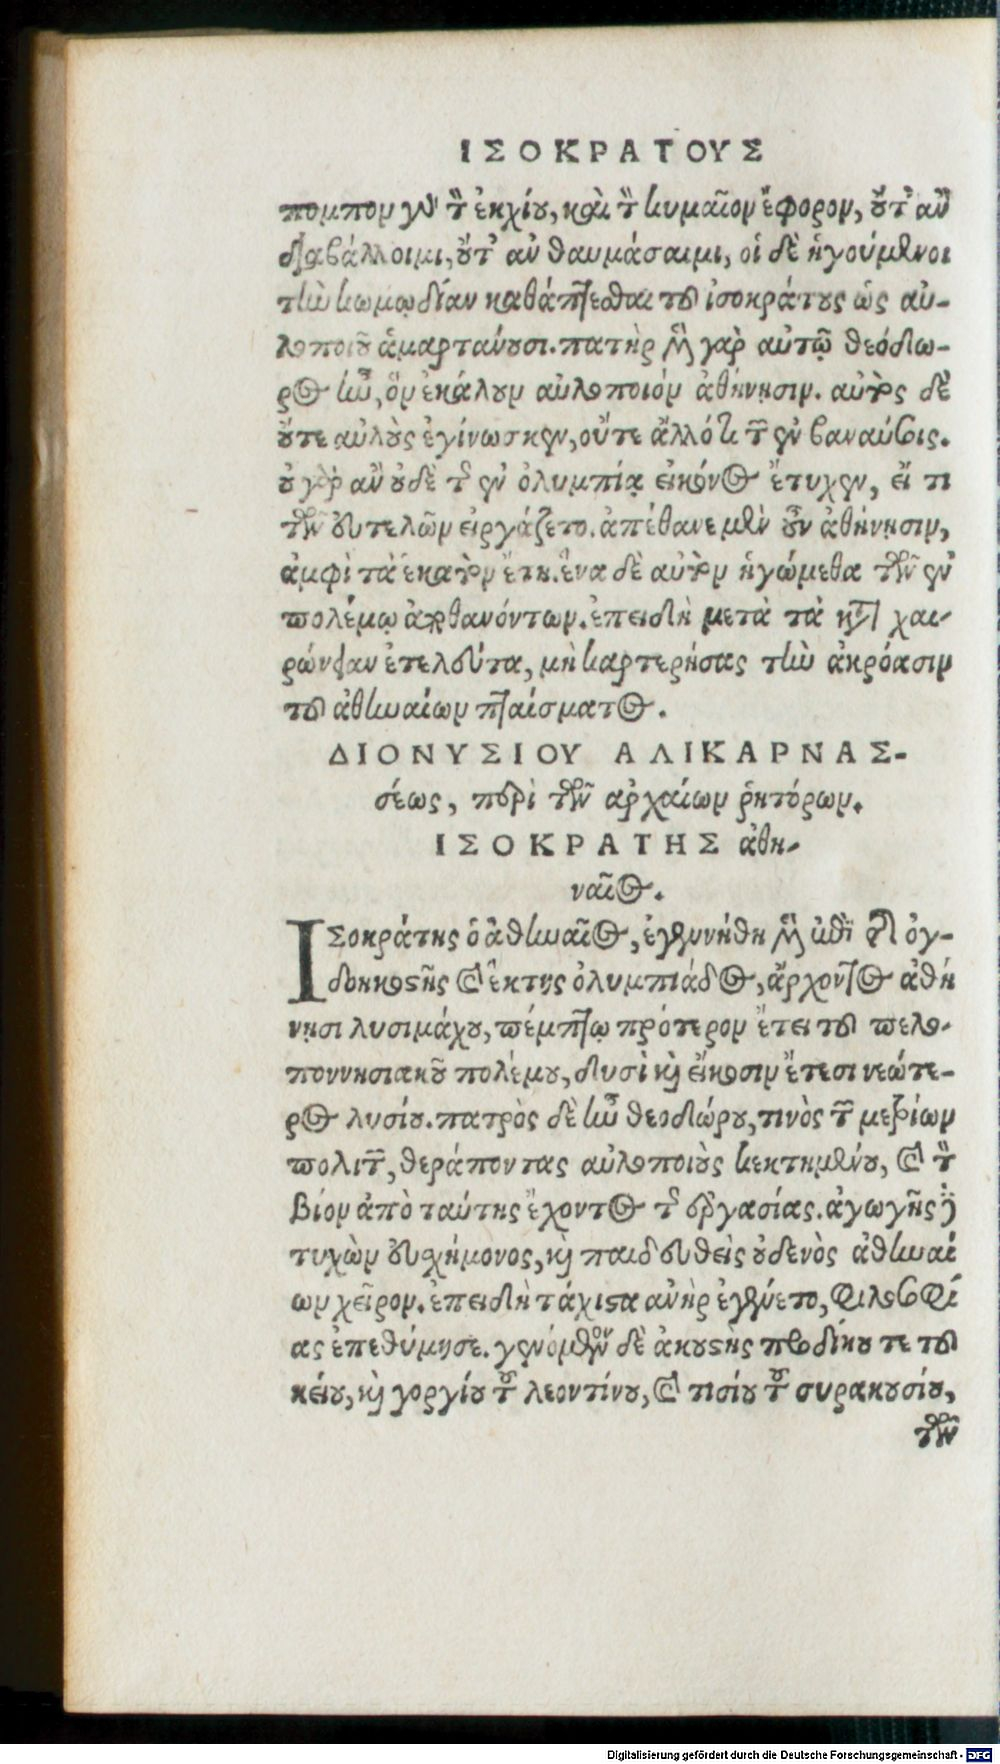 ΙΣΟΚΡΑΤΟΥΣ
πομπον γοῦν τὸν ἐκχίου, καὶ τὸν κυμαῖον ἔφορον, οὔτ' ἂν
διαβάλλοιμι, οὔτ' ἂν θαυμάσαιμι, οἱ δὲ ἡγούμενοι
τὴν κωμῳδίαν καθάπτεσθαι τοῦ ἰσοκράτους ὡς αὐ-
λοποιοῦ ἁμαρτάνουσι. πατὴρ μὲν γὰρ αὐτῷ θεόδω-
ρος ἦν, ὃν ἐκάλουν αὐλοποιὸν ἀθήνησιν. αὐτὸς δὲ
οὔτε αὐλοὺς ἐγίνωσκεν, οὔτε ἄλλό τι τῶν ἐν βαναύσοις.
οὐ γὰρ ἂν οὐδὲ τῆς ἐν ὀλυμπίᾳ εἰκόνος ἔτυχεν, εἴ τι
τῶν εὐτελῶν εἰργάζετο. ἀπέθανε μὲν οὖν ἀθήνησιν,
ἀμφὶ τὰ ἑκατὸν ἔτη. ἕνα δὲ αὐτὸν ἡγώμεθα τῶν ἐν
πολέμῳ ἀποθανόντων. ἐπειδὴ μετὰ τὰ κατὰ χαι-
ρώνειαν ἐτελεύτα, μὴ καρτερήσας τὴν ἀκρόασιν
τοῦ ἀθηναίων πταίσματος.
ΔΙΟΝΥΣΙΟΥ ΑΛΙΚΑΡΝΑΣ-
σέως, περὶ τῶν ἀρχαίων ῥητόρων.
ΙΣΟΚΡΑΤΗΣ ἀθη-
ναῖος.
ΙΣοκράτης ὁ ἀθηναῖος, ἐγεννήθη μὲν ἐπὶ τῆς ὀγ-
δοηκοστῆς καὶ ἕκτης ὀλυμπιάδος, ἄρχοντος ἀθή
νησι λυσιμάχου, πέμπτῳ πρότερον ἔτει τοῦ πελο-
ποννησιακοῦ πολέμου, δυσὶ καὶ εἴκοσιν ἔτεσι νεώτε-
ρος λυσίου. πατρὸς δὲ ἦν θεοδώρου, τινὸς τῶν μετρίων
πολιτῶν, θεράποντας αὐλοποιοὺς κεκτημένου, καὶ τὸν
βίον ἀπὸ ταύτης ἔχοντος τῆς ἐργασίας. ἀγωγῆς δὲ
τυχὼν εὐσχήμονος, καὶ παιδευθεὶς οὐδενὸς ἀθηναί
ων χεῖρον. ἐπειδὴ τάχιστα ἀνὴρ ἐγένετο, φιλοσοφί
ας ἐπεθύμησε. γενόμενος δὲ ἀκουστὴς προδίκου τε τοῦ
κείου, καὶ γοργίου τοῦ λεοντίνου, καὶ τισίου τοῦ συρακουσίου,
τῶν
Digitalisierung gefördert durch die Deutsche Forschungsgemeinschaft - DFG